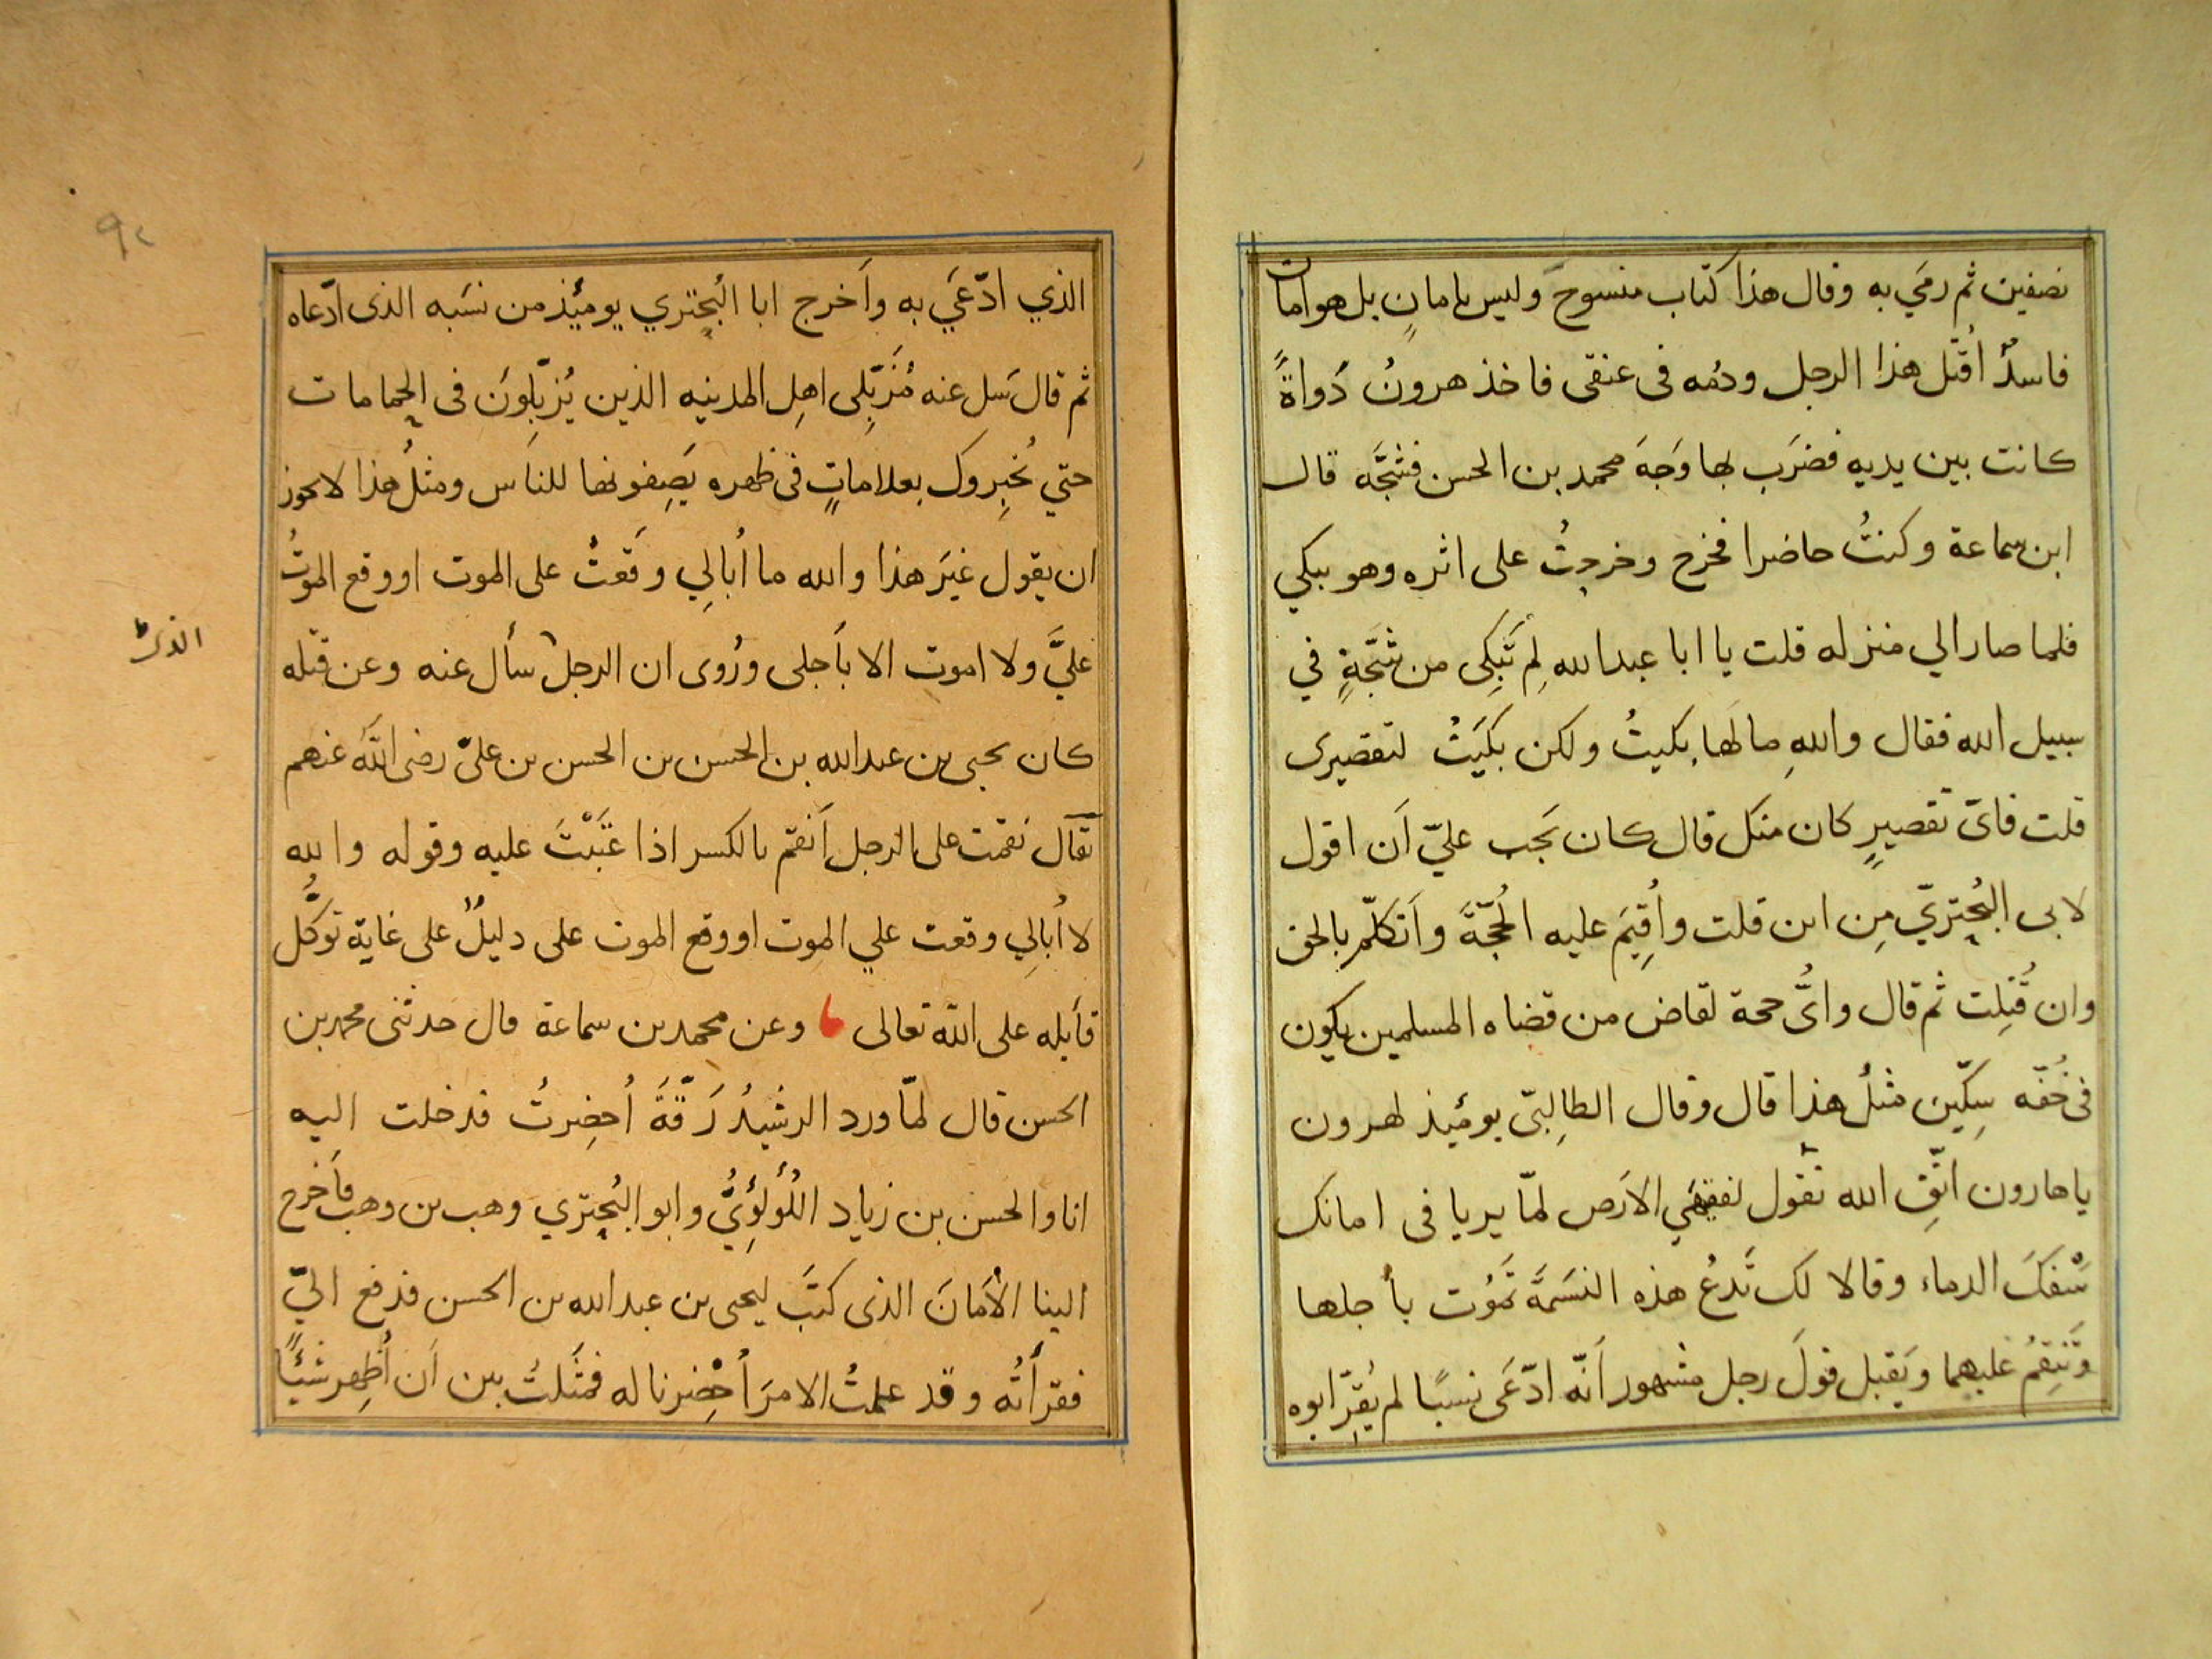 نصفين ثم رمَي به وقال هذا كتاب منسوخ وليس بامانٍ بل هو امان
فاسدٌ اُقتُل هذا الرجل ودمُه فى عنقى فاخذ هرونُ دَواةً
كانت بين يديه فضرَب بها وَجهَ محمد بن الحسن فشجَّه قال
ابن سماعة وكنتُ حاضرا فخرج وخرجتُ على اثره وهو يبكي
فلما صار الي منزله قلت يا ابا عبد الله لِمَ تَبكِى من شَجَّةٍ في
سبيل الله فقال واللهِ ما لها بكيتُ ولكن بكَيتُ لتقصيرى
قلت فاىّ تقصيرٍ كان منك قال كان يَجب عليّ اَن اقول
لابى البُختريّ مِن اين قلت واُقِيمَ عليه الحُجّةَ واَتكلّم بالحق
وان قُتِلت ثم قال واىُّ حجة لقاض من قضاه المسلمين يكون
فى خُفّه سِكّين مثلُ هذا قال وقال الطالِبىّ يومئذ لهرون
يا هارون اتّقِ الله تقول لفقيهَي الارَض لمّا يريا فى امانك
سَفكَ الدماء وقالا لك تَدعُ هذه النسَمةَ تَموُت بأجلها
وَتَنقِمُ عليهما ويَقبل قولَ رجل مشهور اَنّه ادّعَى نسبًا لم يُقِرّ ابوه
الذي ادّعَي به واَخرج ابا البُختري يومئذ من نسَبه الذى ادّعاه
ثم قال سَل عنه مُزَبِّلى اهلِ المدينه الذين يُزبّلِونَ فى الحمامات
حتي يُخبِروك بعلاماتٍ فى ظهره يَصِفونها للناَس ومثلُ هذا لا يجوز
ان يقول غيَر هذا والله ما اُبالِي وقَعتُ على الموت او وقع الموتُ
عليَّ ولا اموت الا بأَجلى ورُوى ان الرجل سأل عنه وعن قتله
كان يحيى بن عبد الله بن الحسن بن الحسن بن علىّ رضى اللّه عنهم
تقال نقمت على الرجل اَنقم بالكسر اذا عَتَبْتَ عليه وقوله والله
لا اُبالِي وقعت علي الموت او وقع الموت على دليلٌ على غاية توكُّل
قأيله على اللّه تعالى وعن محمد بن سماعة قال حدثنى محمد بن
الحسن قال لمّا ورد الرشيدُ رَقّةَ اُحضِرتُ فدخلت اليه
انا والحسن بن زياد اللُؤلؤِيُّ وابو البُختري وهب بن وهب فاَخرج
الينا الأمَانَ الذى كتَب ليحيى بن عبد الله بن الحسن فدفع اليّ
فقرأتُه وقد علمتُ الامرَ اُحْضِرنا له فمثَلتُ بين اَن اُظهِر شيئًا
الذى